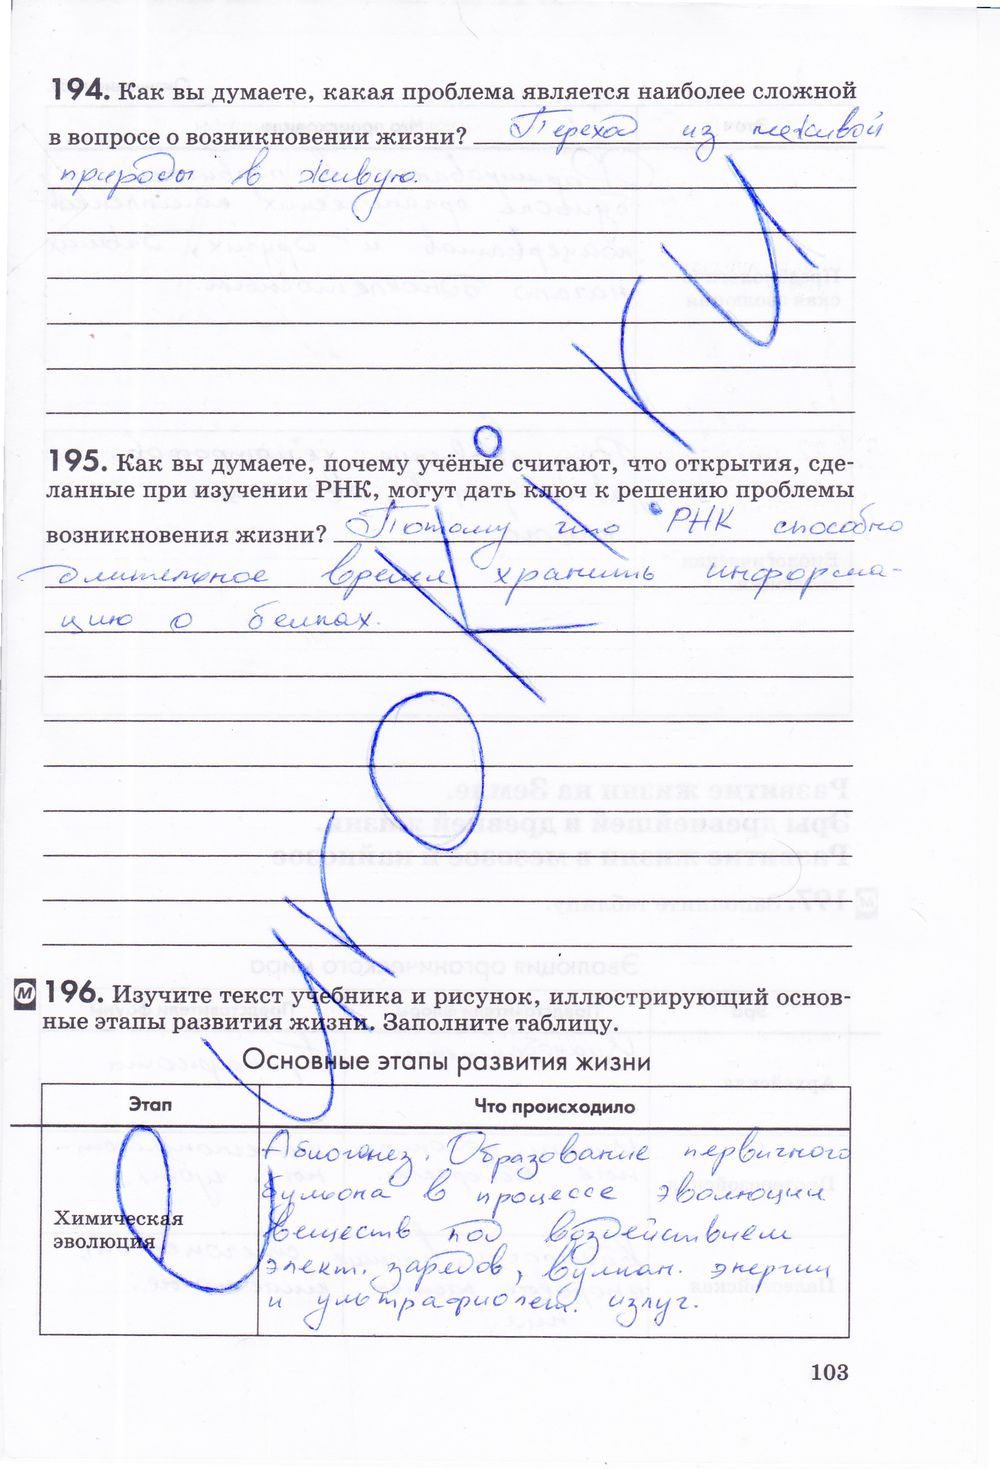 194. Как вы думаете, какая проблема является наиболее сложной
в вопросе о возникновении жизни? Переход из неживой
природы в живую.
195. Как вы думаете, почему учёные считают, что открытия, сде-
ланные при изучении РНК, могут дать ключ к решению проблемы
возникновения жизни? Потому что РНК способно
длительное время хранить информа-
цию о белках.
М 196. Изучите текст учебника и рисунок, иллюстрирующий основ-
ные этапы развития жизни. Заполните таблицу.
Основные этапы развития жизни
Этап Что происходило
Химическая
эволюция
Абиогенез. Образование первичного
бульона в процессе эволюции
веществ под воздействием
элект. зарядов, вулкан. энергии
и ультрафиолет. излуч.
103